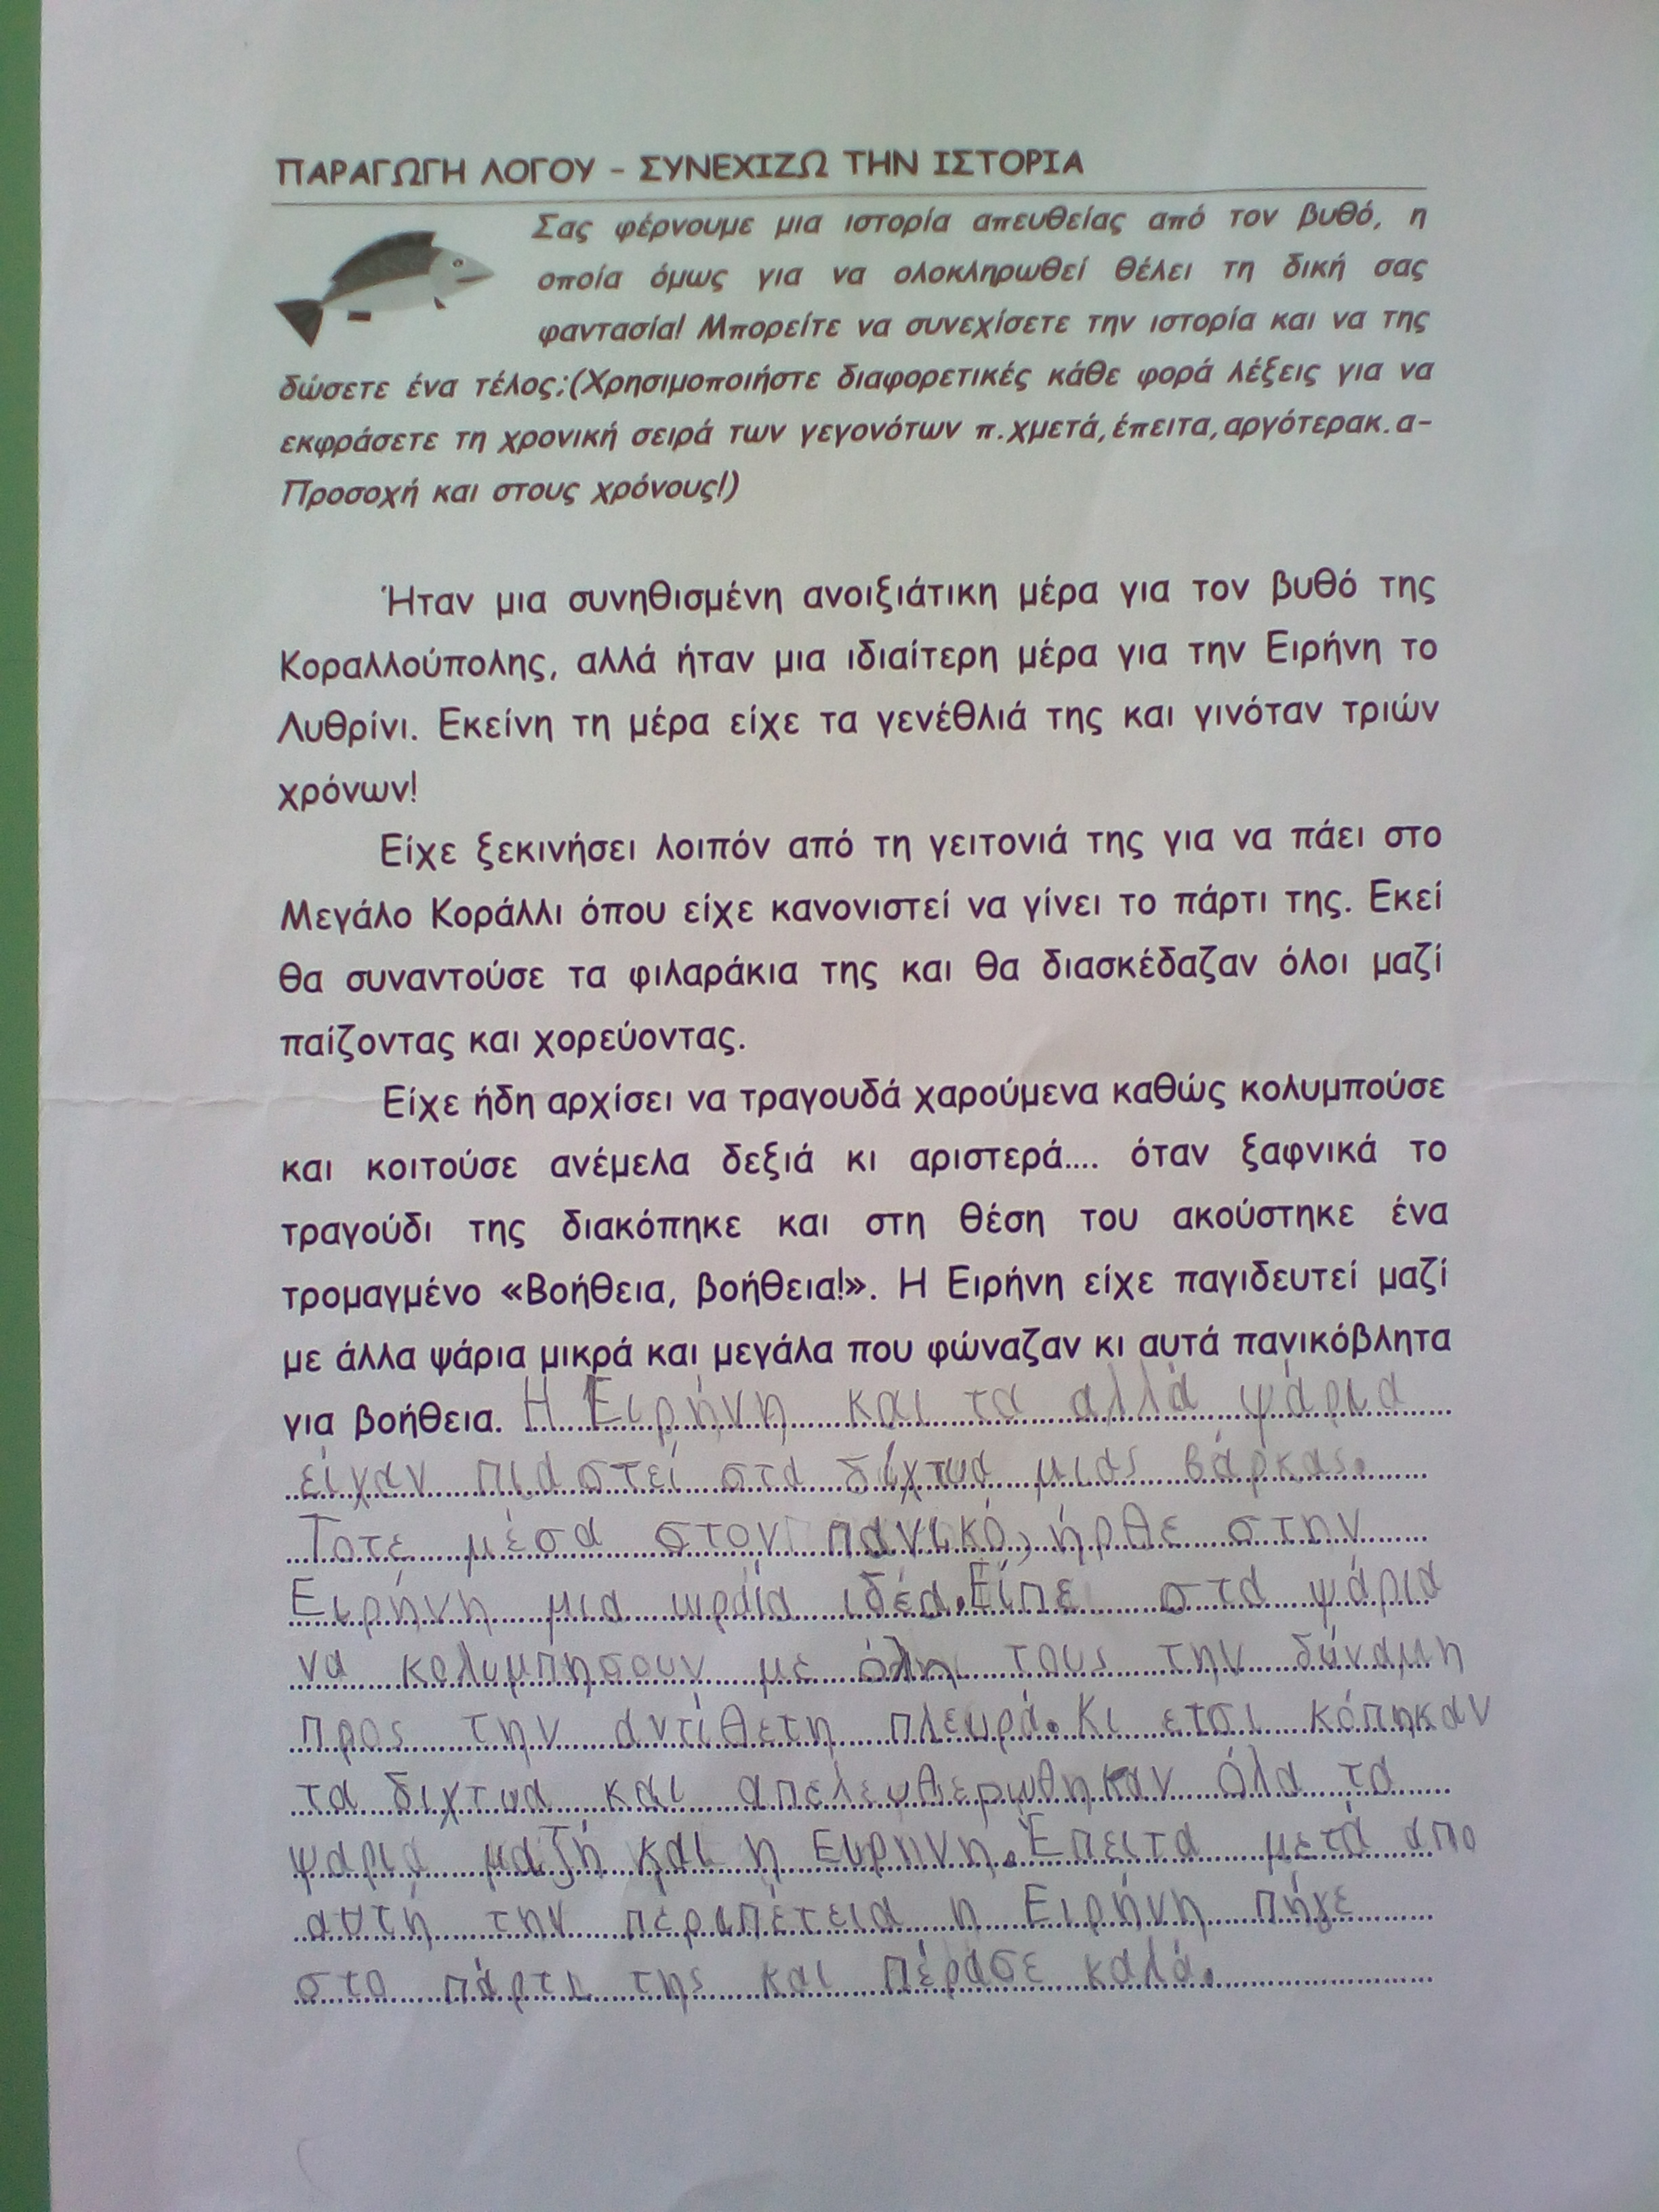 ΠΑΡΑΓΩΓΗ ΛΟΓΟΥ – ΣΥΝΕΧΙΖΩ ΤΗΝ ΙΣΤΟΡΙΑ
Σας φέρνουμε μια ιστορία απευθείας από τον βυθό, η
οποία όμως για να ολοκληρωθεί θέλει τη δική σας
φαντασία! Μπορείτε να συνεχίσετε την ιστορία και να της
δώσετε ένα τέλος;(Χρησιμοποιήστε διαφορετικές κάθε φορά λέξεις για να
εκφράσετε τη χρονική σειρά των γεγονότων π.χμετά,έπειτα,αργότερακ.α-
Προσοχή και στους χρόνους!)
Ήταν μια συνηθισμένη ανοιξιάτικη μέρα για τον βυθό της
Κοραλλούπολης, αλλά ήταν μια ιδιαίτερη μέρα για την Ειρήνη το
Λυθρίνι. Εκείνη τη μέρα είχε τα γενέθλιά της και γινόταν τριών
χρόνων!
Είχε ξεκινήσει λοιπόν από τη γειτονιά της για να πάει στο
Μεγάλο Κοράλλι όπου είχε κανονιστεί να γίνει το πάρτι της. Εκεί
θα συναντούσε τα φιλαράκια της και θα διασκέδαζαν όλοι μαζί
παίζοντας και χορεύοντας.
Είχε ήδη αρχίσει να τραγουδά χαρούμενα καθώς κολυμπούσε
και κοιτούσε ανέμελα δεξιά κι αριστερά.... όταν ξαφνικά το
τραγούδι της διακόπηκε και στη θέση του ακούστηκε ένα
τρομαγμένο «Βοήθεια, βοήθεια!». Η Ειρήνη είχε παγιδευτεί μαζί
με άλλα ψάρια μικρά και μεγάλα που φώναζαν κι αυτά πανικόβλητα
για βοήθεια. Η Ειρήνη και τα αλλά ψάρια
είχαν πιαστεί στα δίχτυα μιας βάρκας.
Τοτε μέσα στον πανικό, ήρθε στην
Ειρήνη μια ωραία ιδέα. Είπε στα ψάρια
να κολυμπησουν με όλη τους την δύναμη
προς την αντίθετη πλευρά. Κι ετσι κόπηκαν
τα διχτυα και απελευθερωθηκαν όλα τα
ψαρια μαζή και η Ειρηνη. Έπειτα μετά απο
αυτή την περιπέτεια η Ειρήνη πήγε
στο πάρτι της και πέρασε καλά.